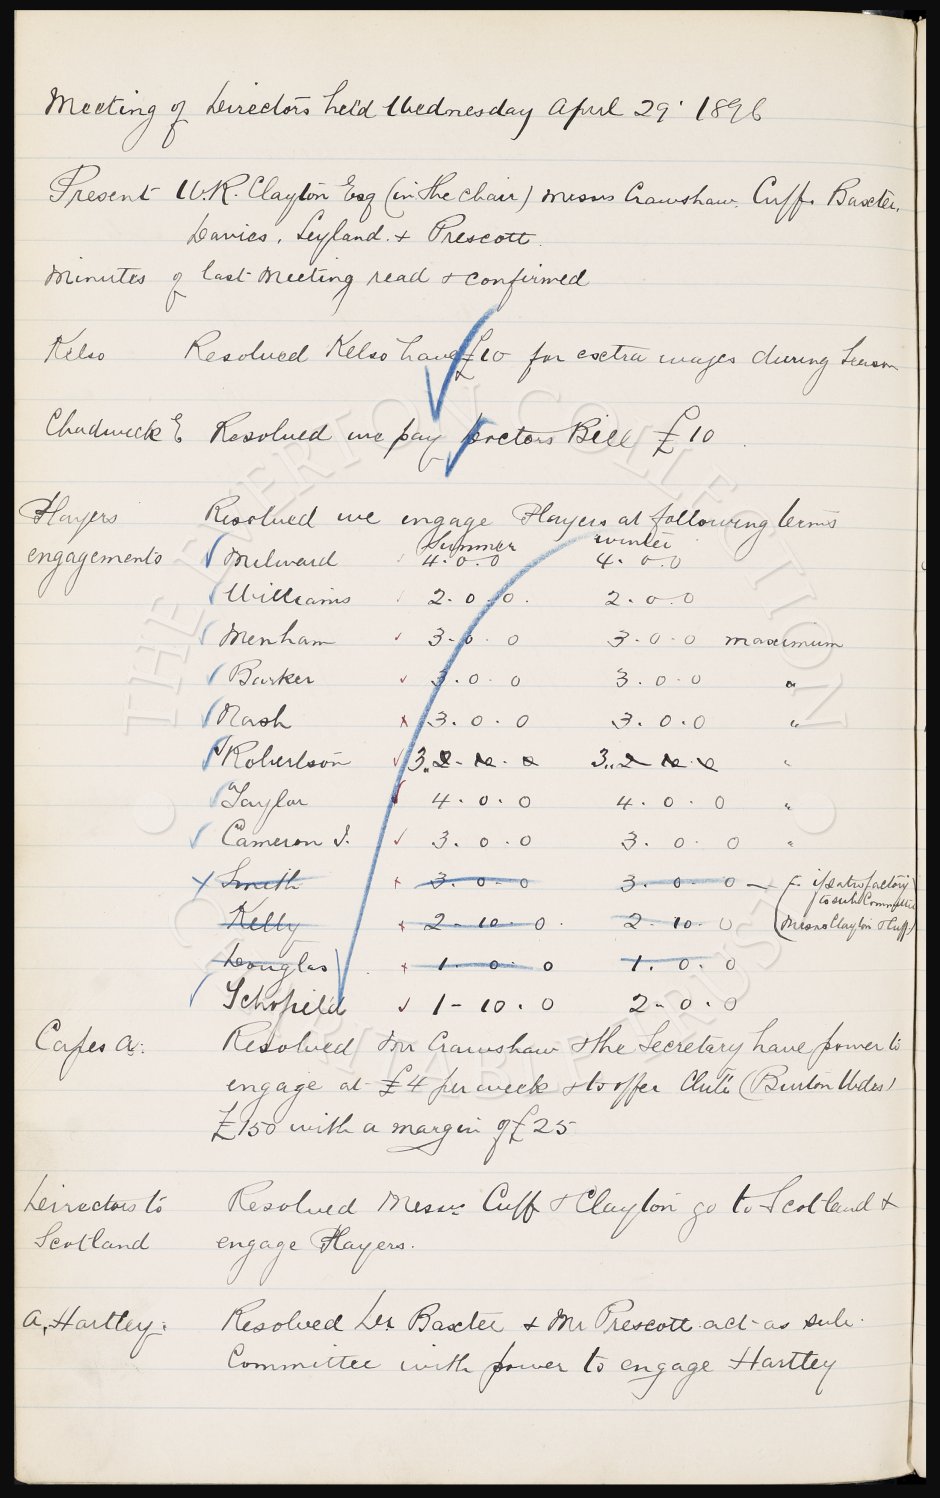 Meeting of Directors held Wednesday April 29. 1896
Present W.R. Clayton Esq (in the chair) Messrs Crawshaw. Cuff. Baxter.
Davies. Leyland. & Prescott.
Minutes of last Meeting read & confirmed
Kelso Resolved Kelso have £10 for extra wages during Season
Chadwick E Resolved we pay Doctors Bill £10.
Players Resolved we engage Players at following terms
Summer winter
engagements Milward 4.0.0 4.0.0
Williams 2.0.0. 2.0.0
Menham 3.0.0 3.0.0 maximum
Barker 3.0.0 3.0.0 "
Nash 3.0.0 3.0.0 "
Robertson 3,, 3,, "
Taylor 4.0.0 4.0.0 "
Cameron J. 3.0.0 3.0.0 "
Smith 3.0.0 3.0.0 — if satisfactory
to sub Committee
Kelly 2.10.0. 2.10.0 (Messrs Clayton & Cuff)
Douglas 1.0.0 1.0.0
Schofield 1-10.0 2.0.0
Capes A. Resolved Mr Crawshaw & the Secretary have power to
engage at £4 per week & to offer Club (Burton Wdes)
£150 with a margin of £25
Directors to Resolved Messrs Cuff & Clayton go to Scotland &
Scotland engage Players.
A, Hartley. Resolved Dr Baxter & Mr Prescott act as sub.
Committee with power to engage Hartley
THE EVERTON COLLECTION
CHARITABLE TRUST